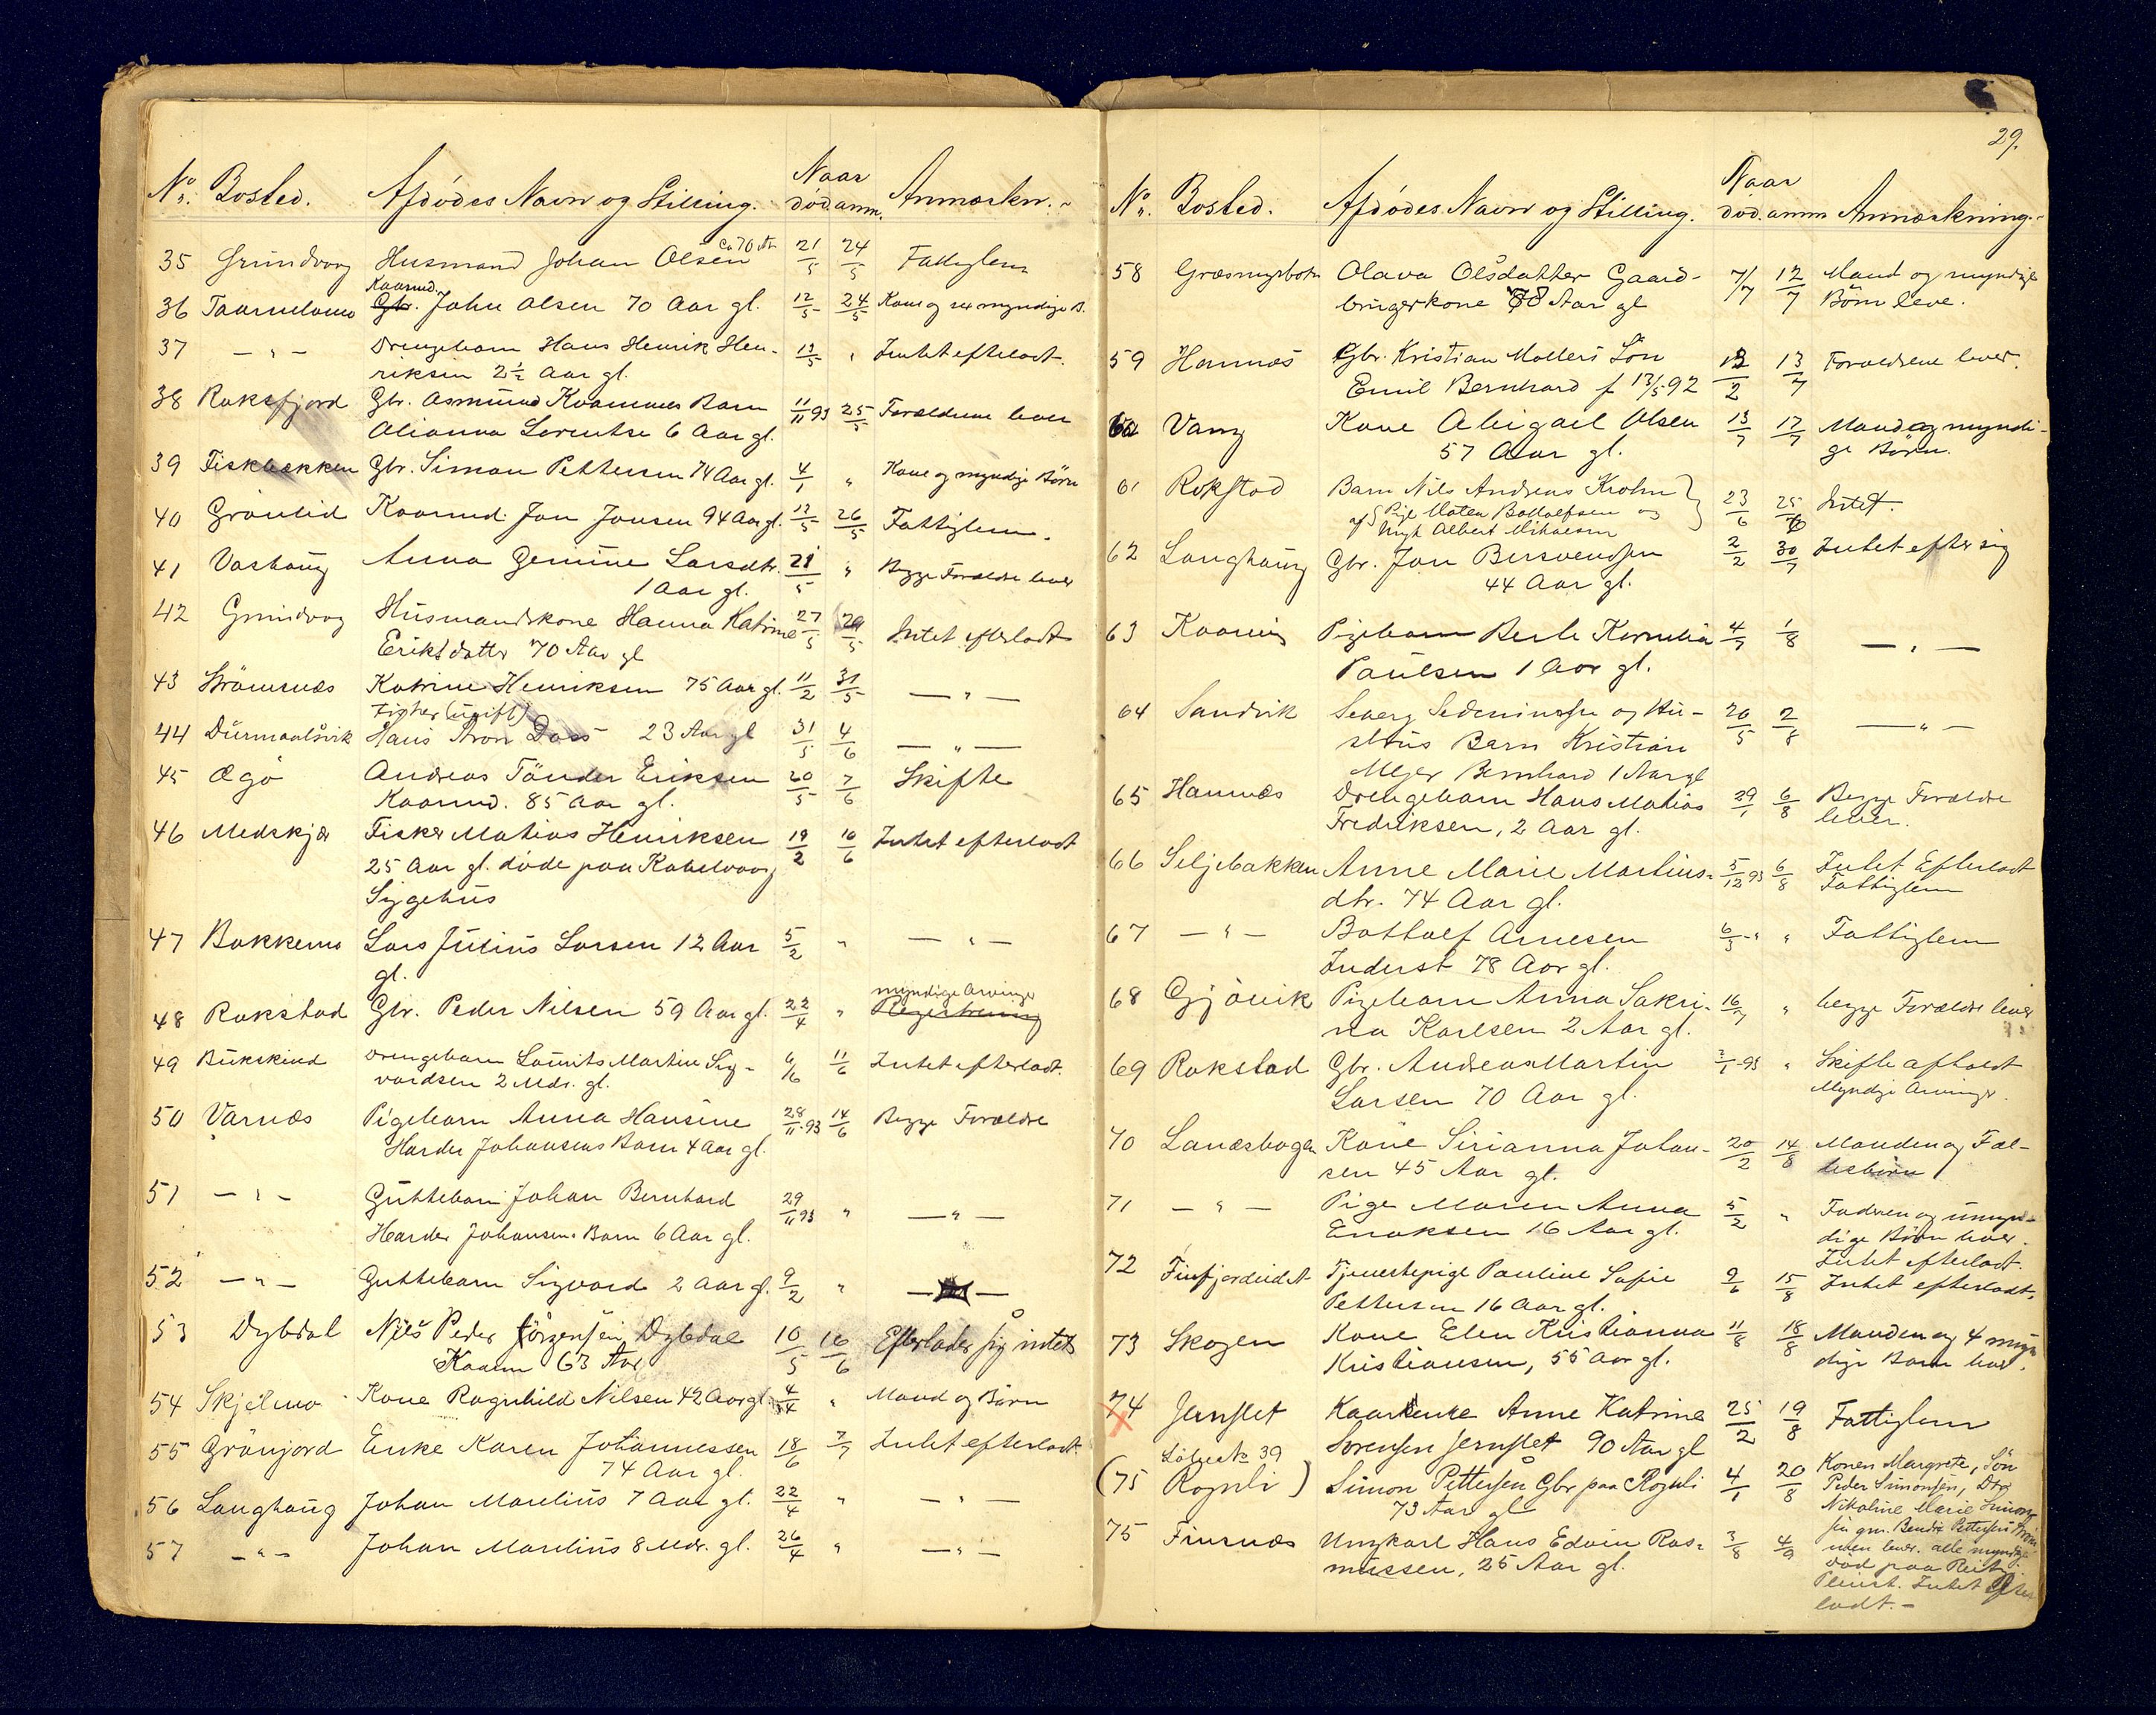 Naar
No. Bosted. Afdødes Navn og Stilling. død. anm. Anmærkn.
35 Grundvaag Husmand Johan Olsen ca 70 Aar 21/5 24/5 Fattiglem
Kaarmd.
36 Taarnelvmo Gbr. John Olsen 70 Aar gl. 12/5 24/5 Kone og sex myndige B.
37 — " — Drengebarn Hans Henrik Hen-
riksen 2 1/2 Aar gl. 13/5 " Intet efterladt.
38 Roksfjord Gbr. Asmund Kvammes Barn 11/11 93 25/5 Forældrene lever
Alianna Lorentse 6 Aar gl.
39 Fiskbakken Gbr. Simon Pettersen 74 Aar gl. 4/1 " Kone og myndige Börn
40 Grönlid Kaarmd. Jon Jonsen 94 Aar gl. 12/5 26/5 Fattiglem.
41 Vashaug Anna Gemine Larsdtr. 21/5 " Begge Forældre lever
1 Aar gl.
42 Grundvag Husmandskone Hanna Katrine 27/5 29/5 Intet efterladt
Eriksdatter 70 Aar gl
43 Strömsnæs Katrine Henriksen 75 Aar gl. 11/2 31/5 — " —
Fisker (ugift)
44 Durmaalsvik Hans Aron Dass 23 Aar gl 31/5 4/6 — " —
45 Ægö Andreas Tönder Eriksen 20/5 7/6 Skifte
Kaarmd. 85 Aar gl.
46 Medskjær Fisker Matias Henriksen 19/2 10/6 Intet efterladt
25 Aar gl. døde paa Kabelvaag
Sygehus
47 Bakkemo Lars Julius Larsen 12 Aar 5/2 " — " —
gl.
myndige Arvinger
48 Rokstad Gbr. Peder Nilsen 59 Aar gl. 22/4 " Registrering
49 Bukskind Drengebarn Lourits Martin Sig- 6/6 11/6 Intet efterladt.
vardsen 2 Mdr. gl.
50 Varnæs Pigebarn Anna Hansine 28/11 93 14/6 Begge Forældre
Harder Johansens Barn 4 Aar gl.
51 — " — Guttebarn Johan Bernhard 29/11 93 " — " —
Harder Johansens Barn 6 Aar gl.
52 — " — Guttebarn Sigvard 2 Aar gl. 9/2 "
53 Dybdal Nils Peder Jörgensen Dybdal 10/5 16/6 Efterlader sig intet
Kaarm 63 Aar
54 Skjelmo Kone Ragnhild Nilsen 42 Aar gl. 4/4 " Mand og Börn
55 Grönjord Enke Karen Johannessen 18/6 7/7 Intet efterladt.
74 Aar gl.
56 Langhaug Johan Marelius 7 Aar gl. 22/4 " — " —
57 — " — Johan Marelius 8 Mdr. gl. 26/4 " — " —
29.
Naar
No. Bosted. Afdødes Navn og Stilling. død. anm Anmærkning.
58 Græsmyrbotn Olava Olsdatter Gaard- 7/7 12/7 Mand og myndige
brugerkone 78 Aar gl Börn leve.
59 Hamnæs Gbr. Kristian Mollers Sön 12/2 13/7 Forældrene lever.
Emil Bernhard f 13/5 92
60 Vang Kone Abigael Olsen 13/7 17/7 Mand og myndi-
57 Aar gl. ge Börn.
61 Rokstad Barn Nils Andreas Krohn 23/6 25/7 Intet.
af Pige Maten Bottolfsen og
Ungk Albert Mikalsen
62 Langhaug Gbr. Jon Bersvendsen 2/2 30/7 Intet efter sig
44 Aar gl.
63 Kaarvig Pigebarn Berle Kornelia 4/7 1/8 — " —
Paulsen 1 Aar gl.
64 Sandvik Severg Sedeniussen og Hu- 20/5 2/8 — " —
strus Barn Kristian
Mejer Bernhard 1 Aar gl
65 Hamnæs Drengebarn Hans Matias 29/1 6/8 Begge Forældre
Fredriksen, 2 Aar gl. lever.
66 Seljebakken Anne Marie Martius- 5/12 93 6/8 Intet Efterladt
dtr. 74 Aar gl. Fattiglem
67 — " — Bottolf Arnesen 6/3 " " Fattiglem
Inderst 78 Aar gl.
68 Gjövik Pigebarn Anna Sakri- 16/7 " begge Forældre lever
na Karlsen 2 Aar gl.
69 Rokstad Gbr. Andreas Martin 2/1 93 " Skifte afholdt
Larsen 70 Aar gl. Myndige Arvinger.
70 Lanæsbogen Kone Sirianna Johan- 20/2 14/8 Manden og Fæl-
sen 45 Aar gl. lesbörn
71 — " — Pige Maren Anna 5/2 " Faderen og umyn-
Enoksen 16 Aar gl. dige Börn lever.
Intet efterladt.
72 Finfjordeidet Tjenestepige Pauline Sofie 9/6 15/8 Intet efterladt.
Pettersen 16 Aar gl.
73 Skogen Kone Elen Kristianna 11/8 18/8 Manden og 4 myn
Kristiansen, 55 Aar gl. dige Barn lever.
74 Jernslet Kaarenke Anne Katrine 25/2 19/8 Fattiglem
Sorensen Jernslet 90 Aar gl
Löbe No 39
(75 Rognli) Simon Pettersen Gbr paa Rognli 4/1 20/8 Konen Margrete, Sön
73 Aar gl Peder Simonsen, Dtr
Nikoline Marie Simon
sen gm. Bendix Pettersen
75 Finsnæs Ungkarl Hans Edvin Ras- 3/8 4/9 lever. alle myndige
mussen, 25 Aar gl. död paa
Intet Efter
ladt.-